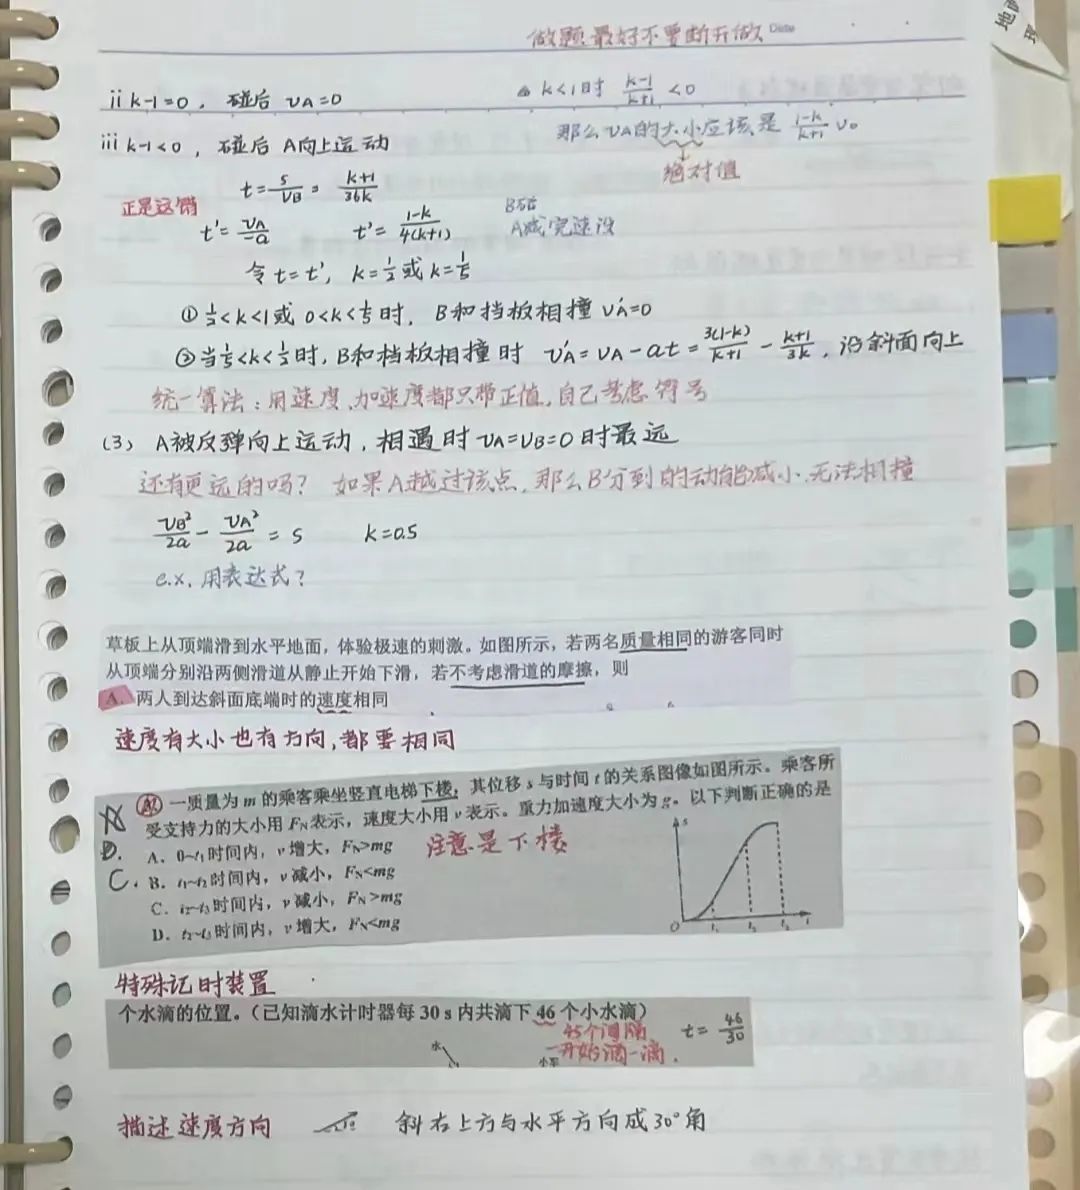 做题最好不要断开做 Date
ii k-1=0，碰后 vA=0
△ k<1时 (k-1)/(k+1) <0
那么vA的大小应该是 (1-k)/(k+1) v₀
绝对值
iii k-1<0，碰后 A向上运动
t=s/vB=(k+1)/36k
正是这错
t'=vA/-a t'=(1-k)/4(k+1)
A减完速没
令 t=t'，k=1/2或k=1/5
①1/2<k<1或 0<k<1/5时，B和挡板相撞 vA'=0
②当1/5<k<1/2时，B和档板相撞时 vA'=vA-at=3(1-k)/(k+1) - (k+1)/3k，沿斜面向上
统一算法：用速度、加速度都只带正值，自己考虑符号
(3) A被反弹向上运动，相遇时vA=vB=0时最远
还有更远的吗？如果A越过该点，那么B分到的动能减小，无法相撞
vB²/2a - vA²/2a = s k=0.5
e.x. 用表达式？
草板上从顶端滑到水平地面，体验极速的刺激。如图所示，若两名质量相同的游客同时
从顶端分别沿两侧滑道从静止开始下滑，若不考虑滑道的摩擦，则
A. 两人到达斜面底端时的速度相同
速度有大小也有方向，都要相同
一质量为 m 的乘客乘坐竖直电梯下楼，其位移 s 与时间 t 的关系图像如图所示。乘客所
受支持力的大小用 FN 表示，速度大小用 v 表示。重力加速度大小为 g。以下判断正确的是
D.
A．0~t₁时间内，v 增大，FN>mg
注意是下楼
C.
B．t₁~t₂时间内，v 减小，FN<mg
C．t₂~t₃时间内，v 减小，FN>mg
D．t₂~t₃时间内，v 增大，FN<mg
s
O t₁ t₂ t₃ t
特殊记时装置
个水滴的位置。（已知滴水计时器每 30 s 内共滴下 46 个小水滴）
45个间隔
一开始滴一滴.
t=46/30
水
小车
描述速度方向
斜右上方与水平方向成30°角